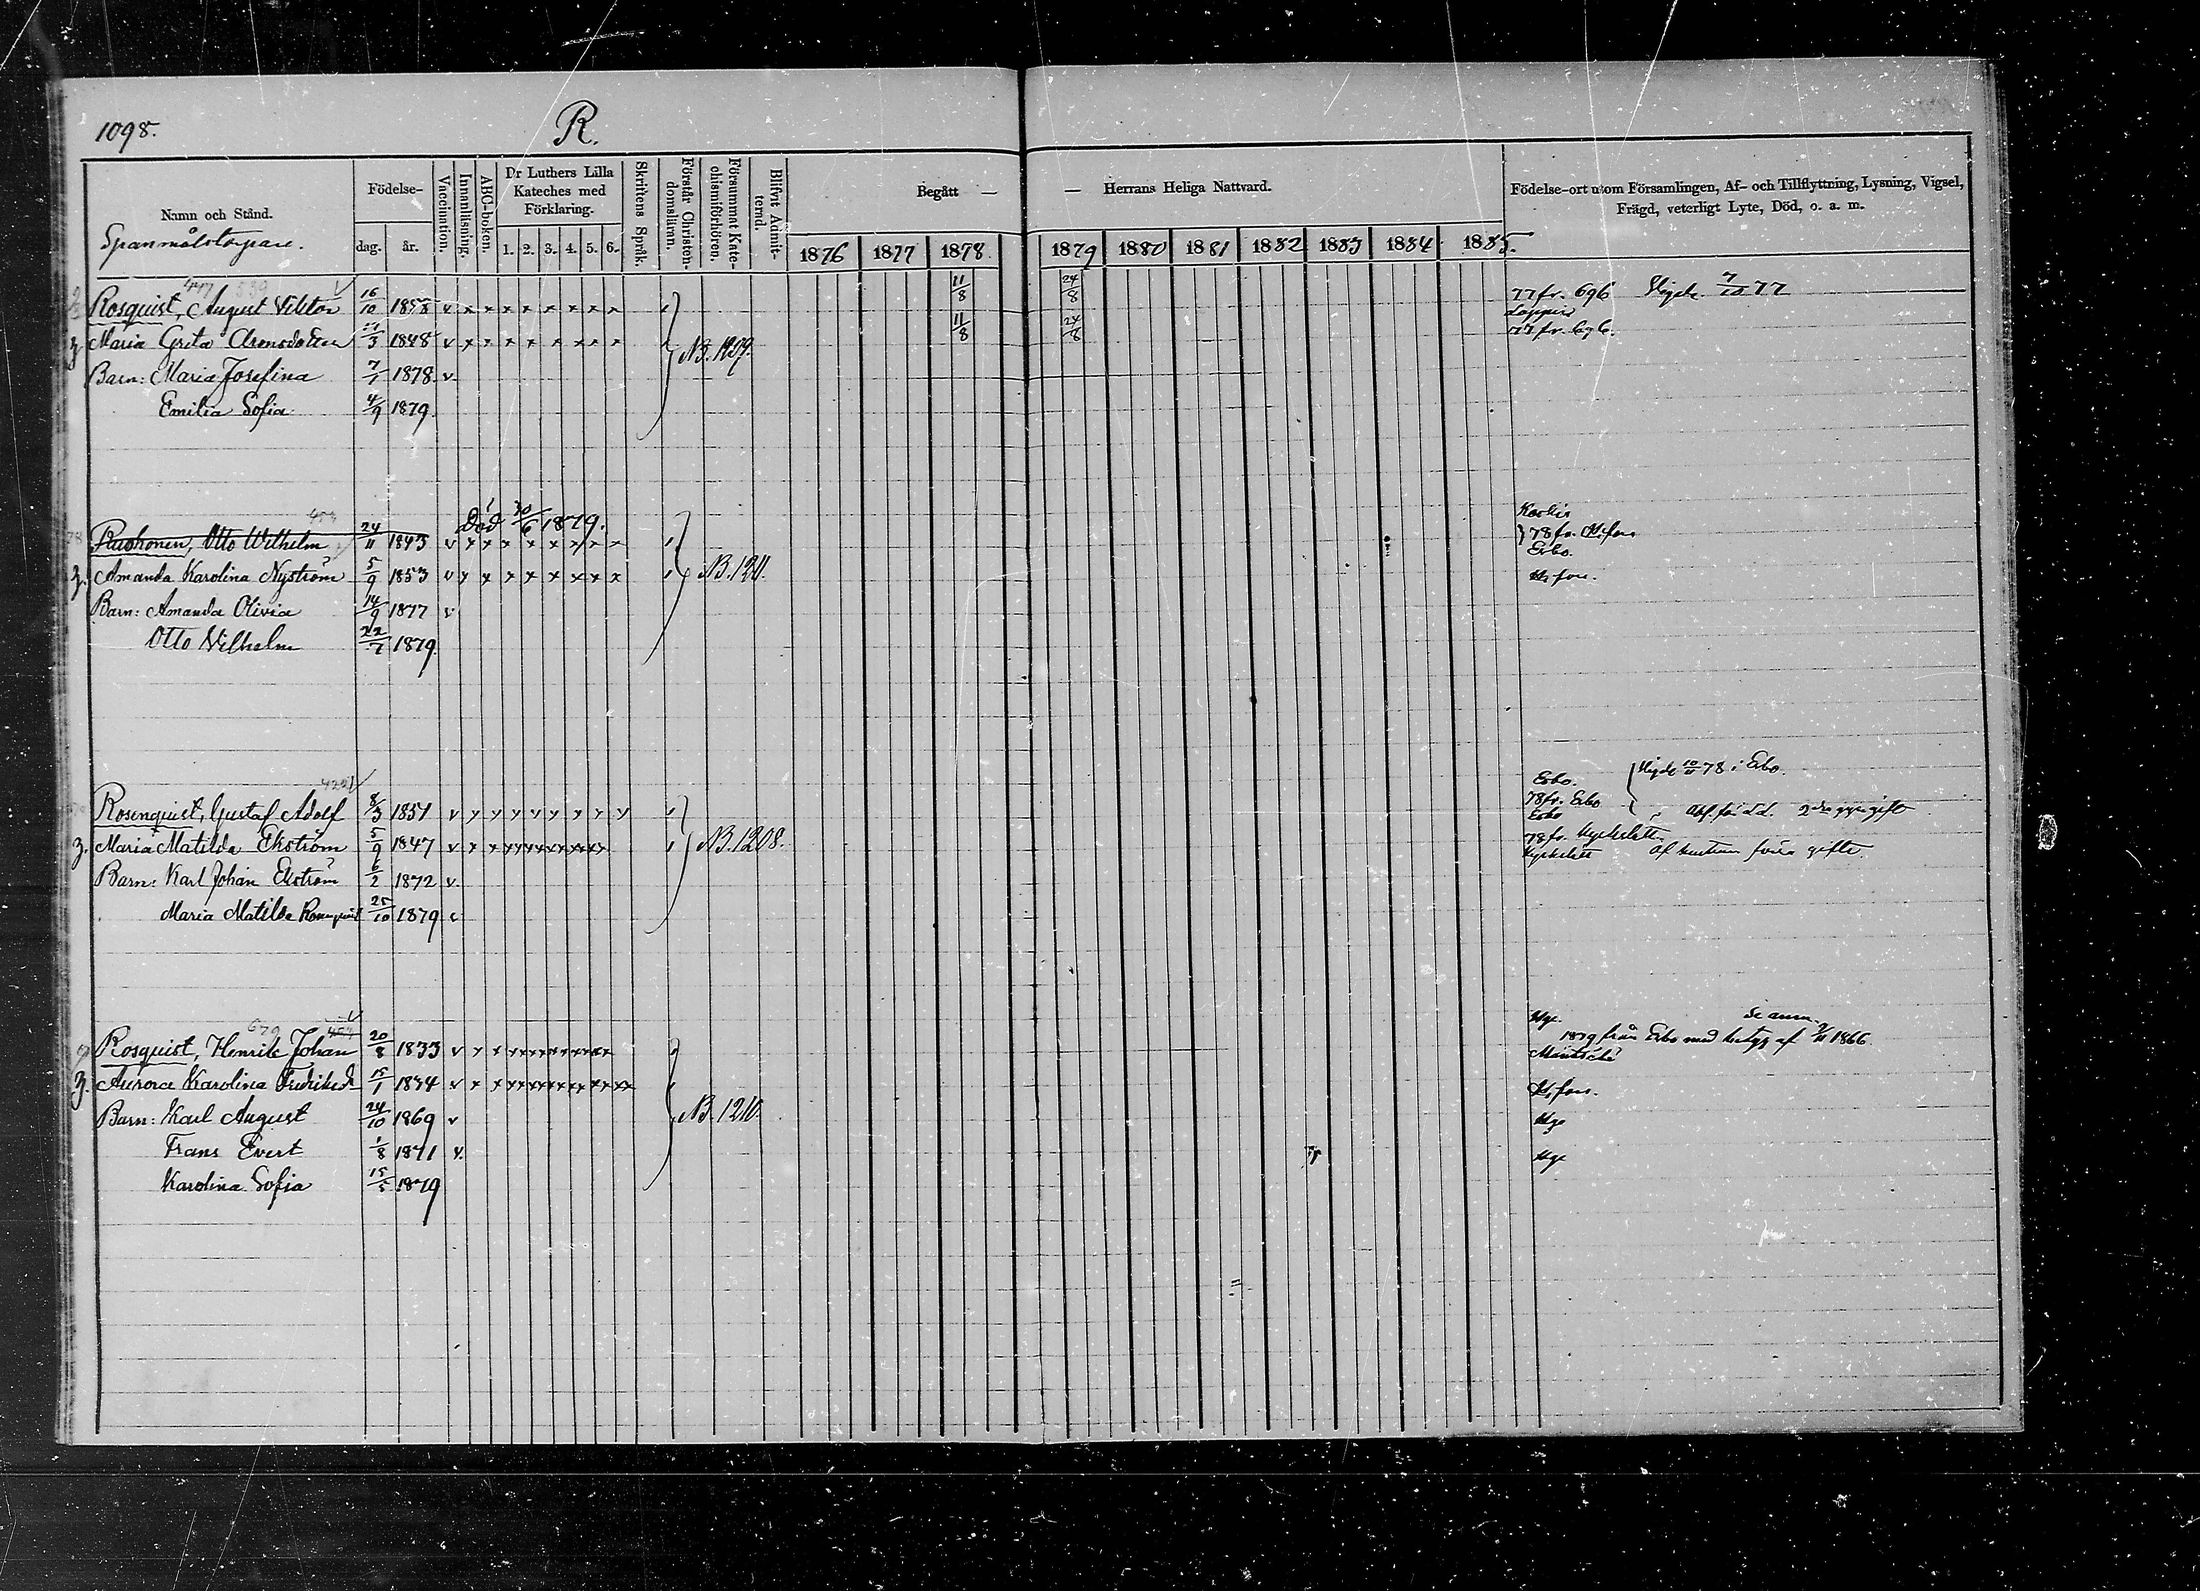 1098.
R.
Namn och Stånd.
Spanmålstorpare.
Födelse-
dag. år.
Vaccination.
Innanläsning.
ABC-boken.
Dr Luthers Lilla
Kateches med
Förklaring.
1. 2. 3. 4. 5. 6.
Skriftens Språk.
Förstår Christen-
domsläran.
Försummat Kate-
chismiförhören.
Blifvit Admit-
terad.
Begått —
— Herrans Heliga Nattvard.
1876 1877 1878 1879 1880 1881 1882 1883 1884 1885.
Födelse-ort utom Församlingen, Af- och Tillflyttning, Lysning, Vigsel,
Frägd, veterligt Lyte, Död, o. a. m.
Rosquist, August Viktor 16/10 v x x x x x x x x 11/8 24/8 77 fr. 696 77
Maria Greta Aronsdotter 1848 v x x x x x x x x 11/8 24/8 77 fr. 696.
Barn: Maria Josefina 7/1 1878 v
Emilia Sofia 4/9 1879.
Död 30/6 1879.
Ruokonen, Otto Wilhelm 24/11 1843 v x x x x x x x x 78 fr. H:fors
Esbo.
Amanda Karolina Nyström 5/9 1853 v x x x x x x x x NB. 1211. H:fors.
Barn: Amanda Olivia 14/9 1877 v
Otto Vilhelm 22/7 1879
Esbo. 78 i Esbo.
Rosenquist, Gustaf Adolf 8/3 1851 78 fr. Esbo
Esbo
Maria Matilda Ekström 5/9 1847 NB. 1208. 78 fr. Kyrkslätt
Kyrkslätt
Barn: Karl Johan Ekström 6/2 1872 v.
Maria Matilda 25/10 1879
Rosquist, Henrik Johan 20/8 1833 1879 från Esbo med betyg af 1866
Aurora Karolina 15/1 1834 H:fors.
Barn: Karl August 24/10 1869 v NB. 1210.
Frans Evert 1/8 1871 v.
Karolina Sofia 15/5 1879